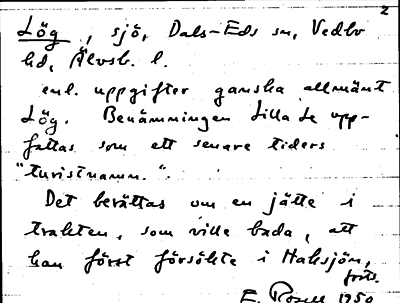 2
Lög, sjö, Dals-Eds sn, Vedbo
hd, Älvsb. l.
enl. uppgifter ganska allmänt
Lög. Benämningen Lilla Le upp-
fattas som ett senare tiders
"turistnamn.".
Det berättas om en jätte i
trakten, som ville bada, att
han först försökte i Halsjön,
forts.
E. Rosell 1950